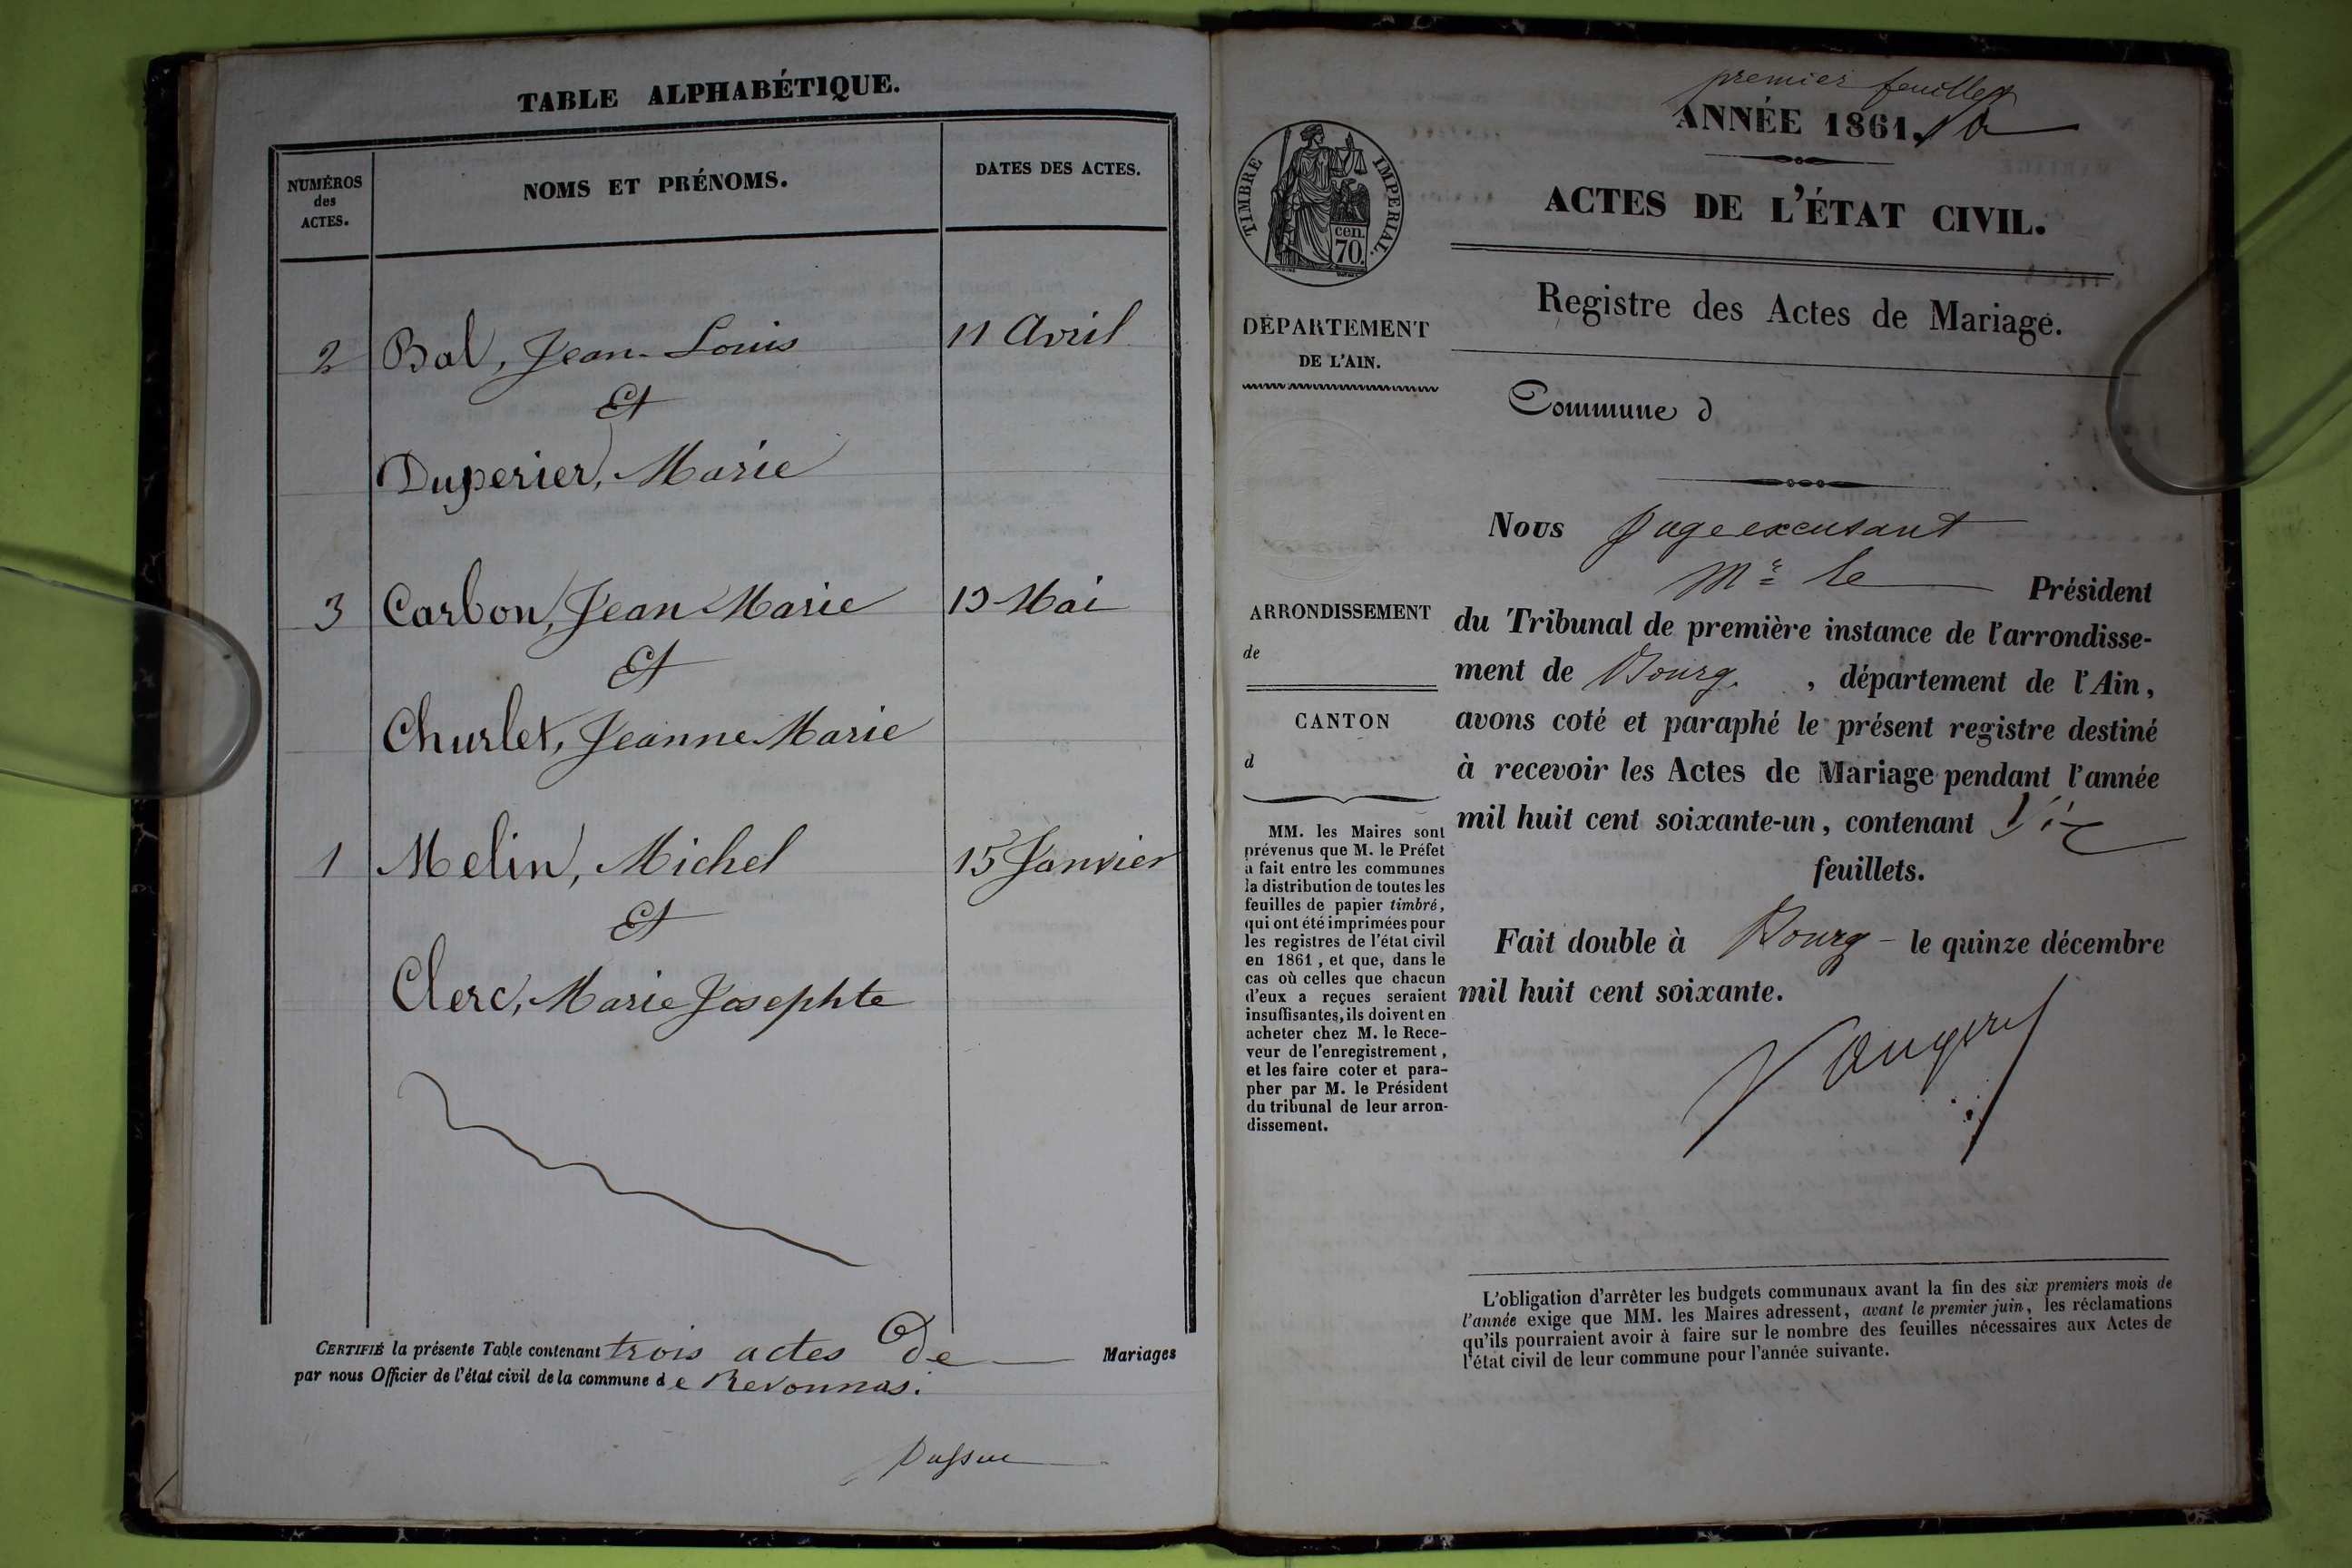 TABLE ALPHABÉTIQUE.
NUMÉROS
des
ACTES.
NOMS ET PRÉNOMS.
DATES DES ACTES.
2 Bal, Jean-Louis 11 Avril
Et
Duperier, Marie
3 Carbon, Jean Marie 19 Mai
Et
Churlet, Jeanne Marie
1 Melin, Michel 15 Janvier
Et
Clerc, Marie Josephte
CERTIFIÉ la présente Table contenant trois actes De Mariages
par nous Officier de l'état civil de la commune de Revonnas.
premier feuillet
ANNÉE 1861.
ACTES DE L'ÉTAT CIVIL.
Registre des Actes de Mariage.
Commune d
TIMBRE IMPERIAL.
cen.
70.
DÉPARTEMENT
DE L'AIN.
ARRONDISSEMENT
de
CANTON
d
MM. les Maires sont
prévenus que M. le Préfet
a fait entre les communes
la distribution de toutes les
feuilles de papier timbré,
qui ont été imprimées pour
les registres de l'état civil
en 1861, et que, dans le
cas où celles que chacun
d'eux a reçues seraient
insuffisantes, ils doivent en
acheter chez M. le Rece-
veur de l'enregistrement,
et les faire coter et para-
pher par M. le Président
du tribunal de leur arron-
dissement.
Nous Juge excusant
Mr le Président
du Tribunal de première instance de l'arrondisse-
ment de Bourg. , département de l'Ain,
avons coté et paraphé le présent registre destiné
à recevoir les Actes de Mariage pendant l'année
mil huit cent soixante-un, contenant
feuillets.
Fait double à Bourg - le quinze décembre
mil huit cent soixante.
L'obligation d'arrêter les budgets communaux avant la fin des six premiers mois de
l'année exige que MM. les Maires adressent, avant le premier juin, les réclamations
qu'ils pourraient avoir à faire sur le nombre des feuilles nécessaires aux Actes de
l'état civil de leur commune pour l'année suivante.